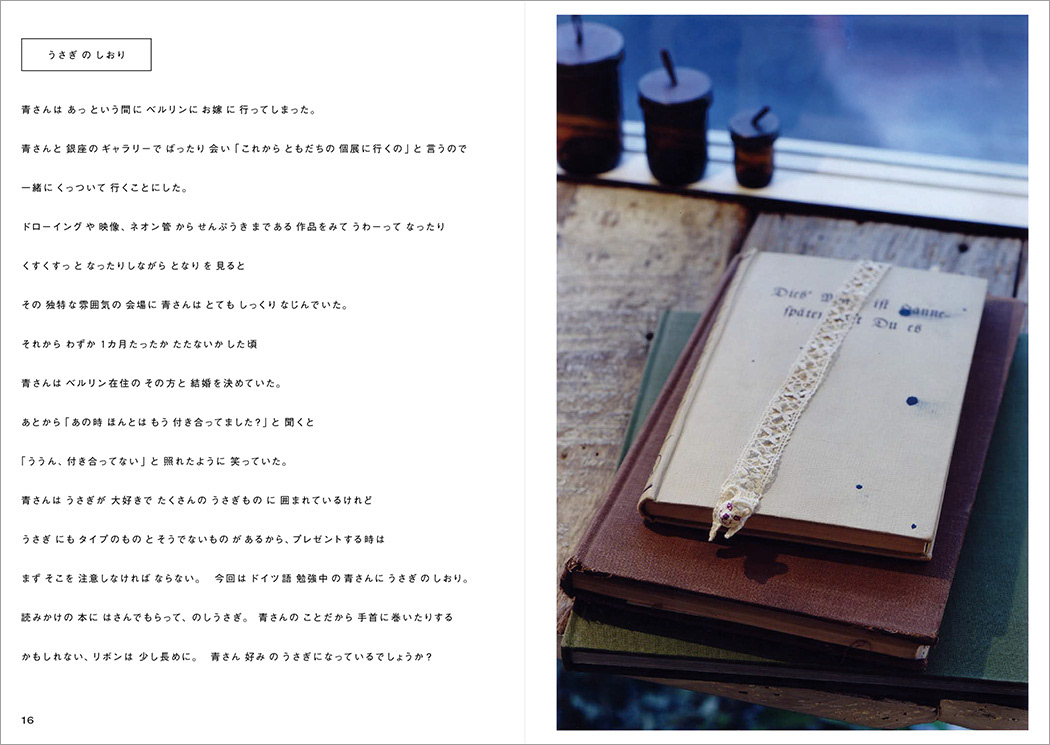 うさぎ の しおり
青さんは あっ という間に ベルリンに お嫁 に 行ってしまった。
青さんと 銀座の ギャラリーで ばったり 会い 「これから ともだちの 個展に行くの」と 言うので
一緒に くっついて 行くことにした。
ドローイング や 映像、ネオン管 から せんぷうき まである 作品をみて うわーって なったり
くすくすっ と なったりしながら となり を 見ると
その 独特な雰囲気の 会場に 青さんは とても しっくり なじんでいた。
それから わずか 1カ月たったか たたないか した頃
青さんは ベルリン在住の その方と 結婚を決めていた。
あとから「あの時 ほんとは もう 付き合ってました？」と 聞くと
「ううん、付き合ってない」 と 照れたように 笑っていた。
青さんは うさぎが 大好きで たくさんの うさぎもの に 囲まれているけれど
うさぎ にも タイプのもの と そうでないもの が あるから、プレゼントする時は
まず そこを 注意しなければ ならない。 今回は ドイツ語 勉強中 の 青さんに うさぎ の しおり。
読みかけの 本に はさんでもらって、のしうさぎ。 青さんの ことだから 手首に巻いたりする
かもしれない、リボンは 少し長めに。 青さん 好み の うさぎになっているでしょうか？
16
Dies' ist
später Du es